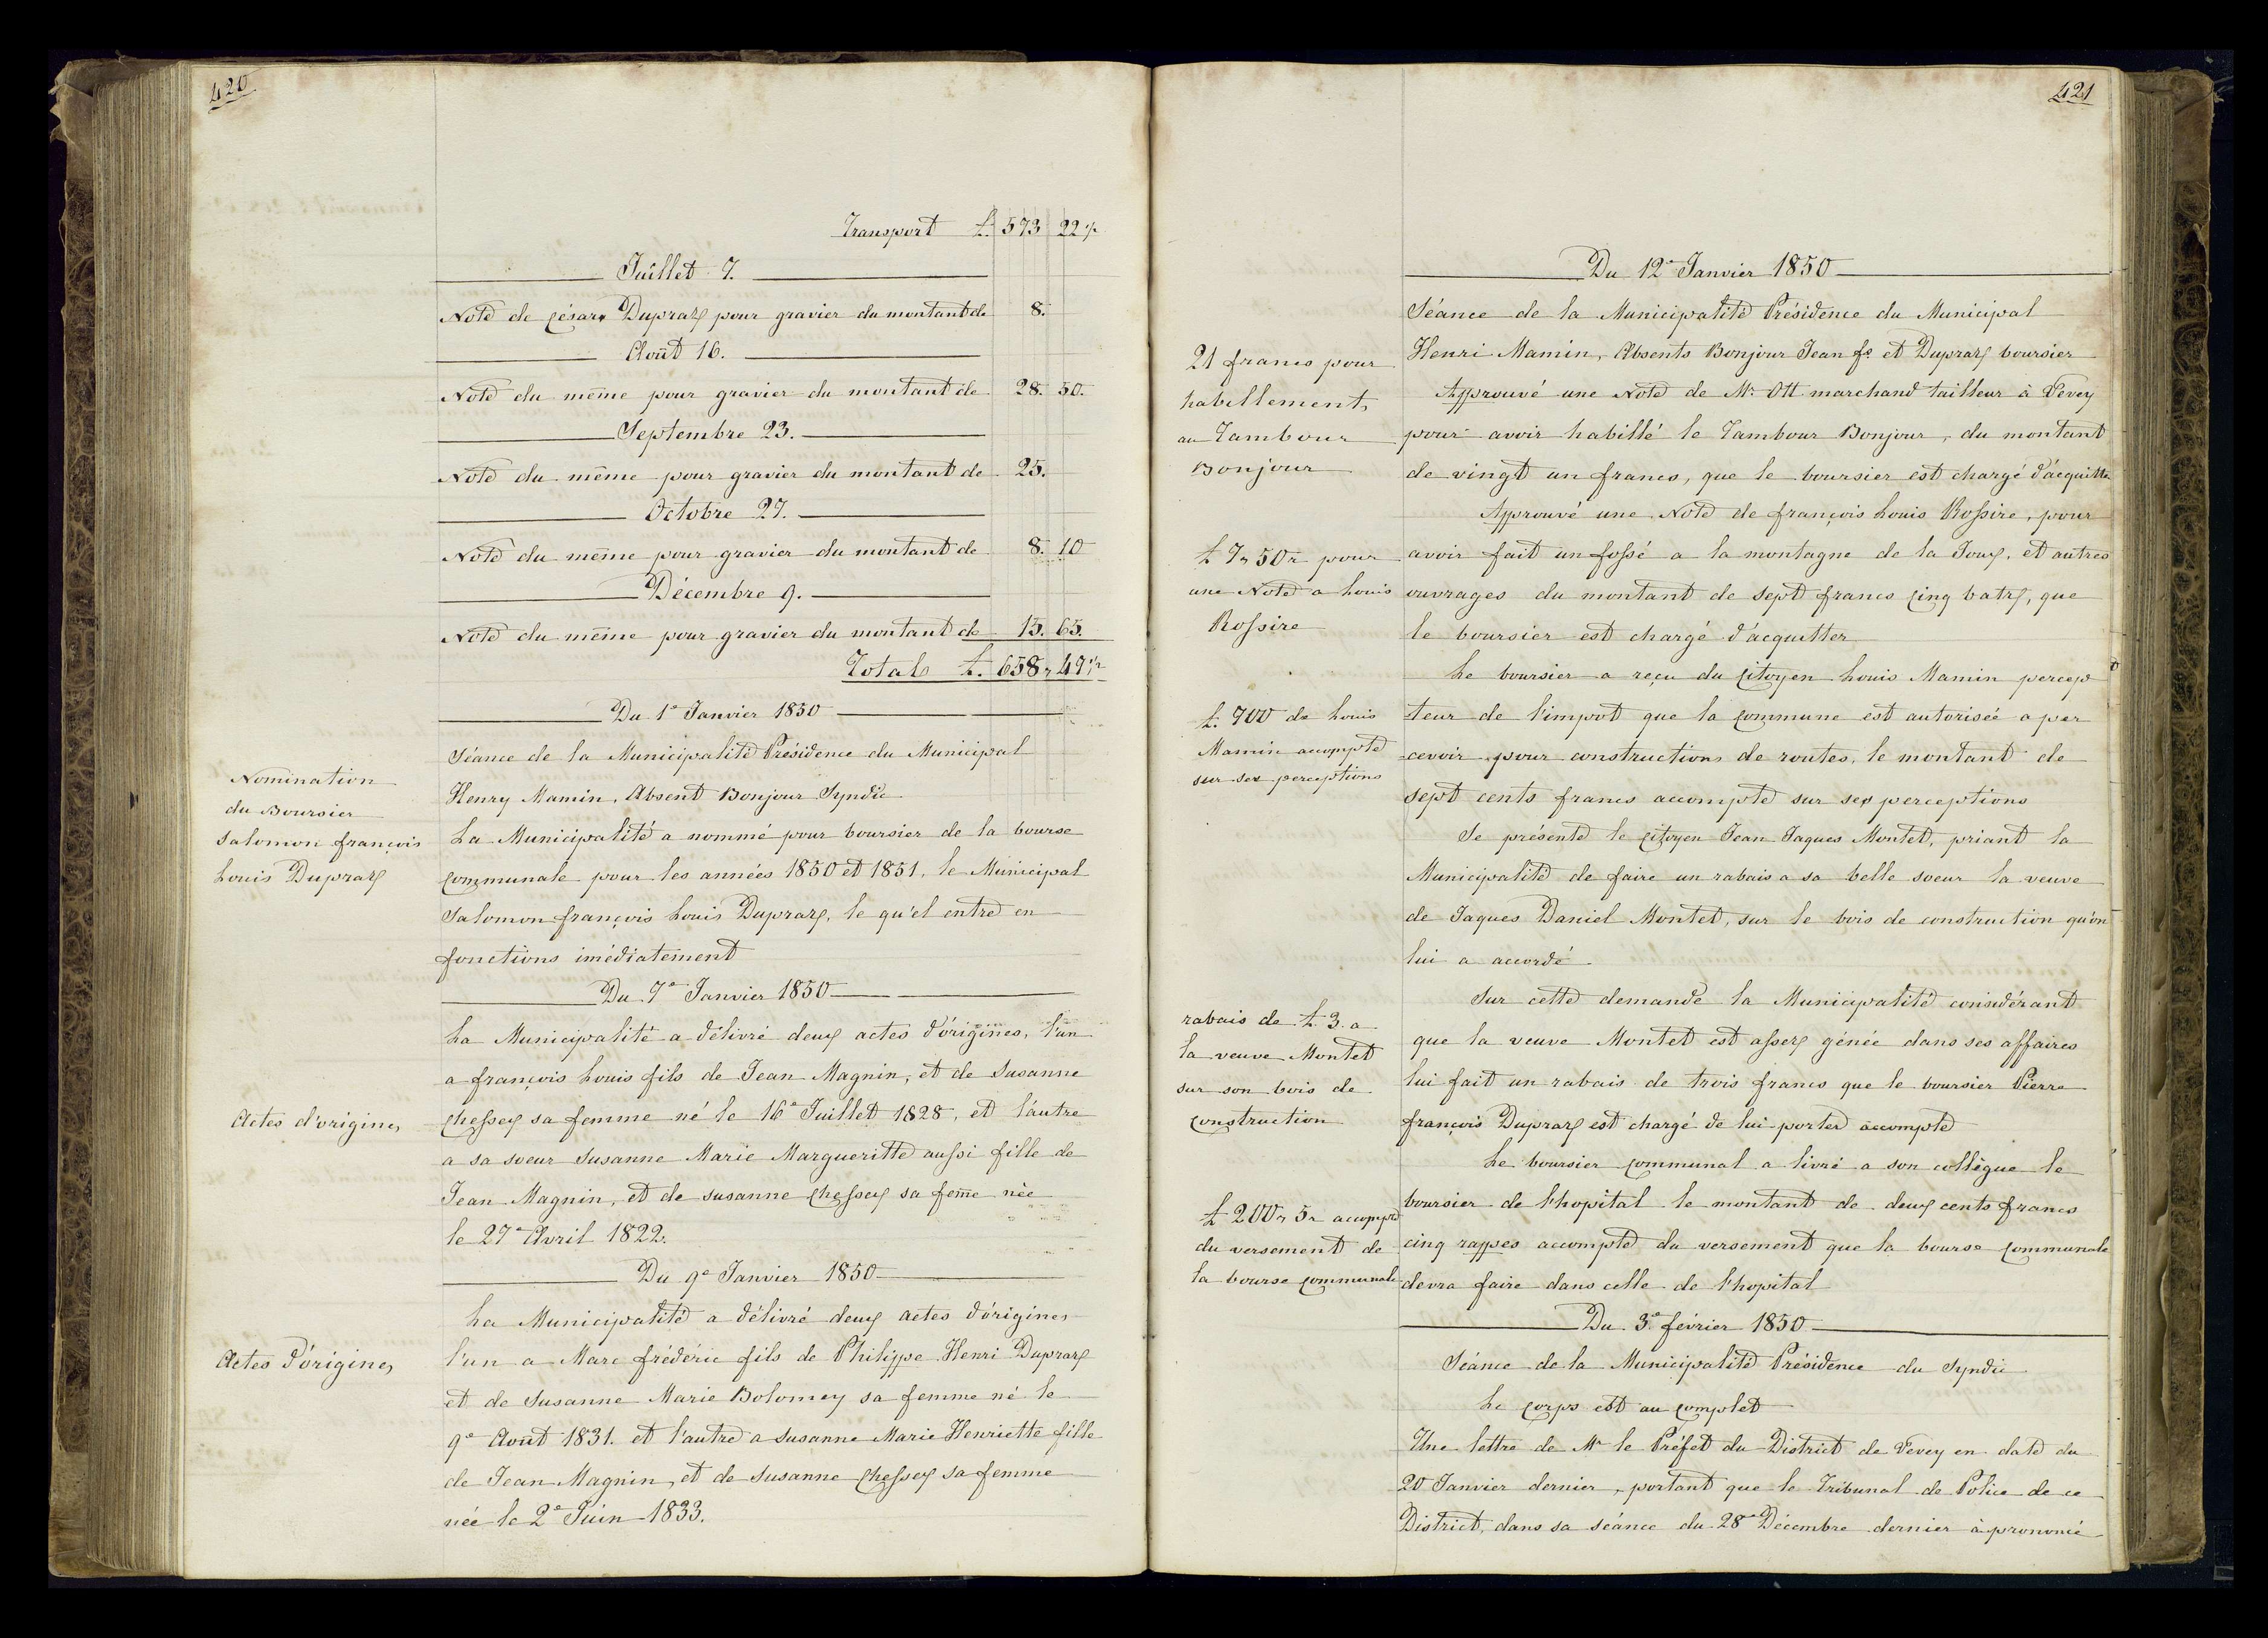 420
Transport £. 573 22 ½
Juillet 7.
Note de César Dupraz pour gravier du montant de 8.
Août 16.
Note du même pour gravier du montant de 28. 50.
Septembre 23.
Note du même pour gravier du montant de 25.
Octobre 27.
Note du même pour gravier du montant de 8. 10
Décembre 9.
Note du même pour gravier du montant de 15. 65.
Total £. 658 „ 47 ½
Du 1e Janvier 1850
Séance de la Municipalité Présidence du Municipal
Henry Mamin, Absent Bonjour Syndic
Nomination
du Boursier
Salomon françois
Louis Dupraz
La Municipalité a nommé pour boursier de la bourse
communale pour les années 1850 et 1851, le Municipal
Salomon françois Louis Dupraz, le qu'el entre en
fonctions imédiatement
Du 7e Janvier 1850
La Municipalité a délivré deux actes d'origines, l'un
a françois Louis fils de Jean Magnin, et de Susanne
Actes d'origines
Chessex sa femme né le 16e Juillet 1828, et l'autre
a sa soeur Susanne Marie Margueritte aussi fille de
Jean Magnin, et de susanne Chessex sa fem̄e née
le 27e Avril 1822.
Du 9e Janvier 1850
La Municipalité a délivré deux actes d'origines
Actes d'origines
l'un a Marc frédéric fils de Philippe Henri Dupraz
et de Susanne Marie Bolomey sa femme né le
9e Août 1831. et l'autre a Susanne Marie Henriette fille
de Jean Magnin, et de Susanne Chessex sa femme
née le 2e Juin 1833.
421
Du 12e Janvier 1850
Séance de la Municipalité Présidence du Municipal
Henri Mamin, Absents Bonjour Jean fs et Dupraz boursier
21 francs pour
habillements
au Tambour
Bonjour
Approuvé une Note de Mr Ott marchand tailleur à Vevey
pour avoir habillé le Tambour Bonjour, du montant
de vingt un francs, que le boursier est chargé d'acquitter
Approuvé une Note de françois Louis Rossire, pour
£ 7 „ 50 „ pour
une Note a Louis
Rossire
avoir fait un fossé a la montagne de la Joux, et autres
ouvrages du montant de sept francs cinq batz, que
le boursier est chargé d'acquitter
Le boursier a reçu du Citoyen Louis Mamin percep
£. 700 de Louis
Mamin accompte
sur ses perceptions
teur de l'impot que la Commune est autorisée a per
cevoir pour constructions de routes, le montant de
sept cents francs accompte sur ses perceptions
Se présente le Citoyen Jean Jaques Montet, priant la
Municipalité de faire un rabais a sa belle soeur la veuve
de Jaques Daniel Montet, sur le bois de construction qu'on
lui a accordé.
Sur cette demande la Municipalité considérant
rabais de £. 3. a
la veuve Montet
sur son bois de
Construction
que la veuve Montet est assez génée dans ses affaires
lui fait un rabais de trois francs que le boursier Pierre
françois Dupraz est chargé de lui porter accompte
Le boursier Communal a livré a son collègue le
£ 200 „ 5 „ accompte
du versement de
la bourse communale
boursier de l'hopital le montant de deux cents francs
cinq rappes accompte du versement que la bourse Communale
devra faire dans celle de l'hopital
Du 3e février 1850
Séance de la Municipalité Présidence du Syndic
Le Corps est au Complet
Une lettre de Mr le Préfet du District de Vevey en date du
20 Janvier dernier, portant que le Tribunal de Police de ce
District, dans sa séance du 28e Décembre dernier à prononcé